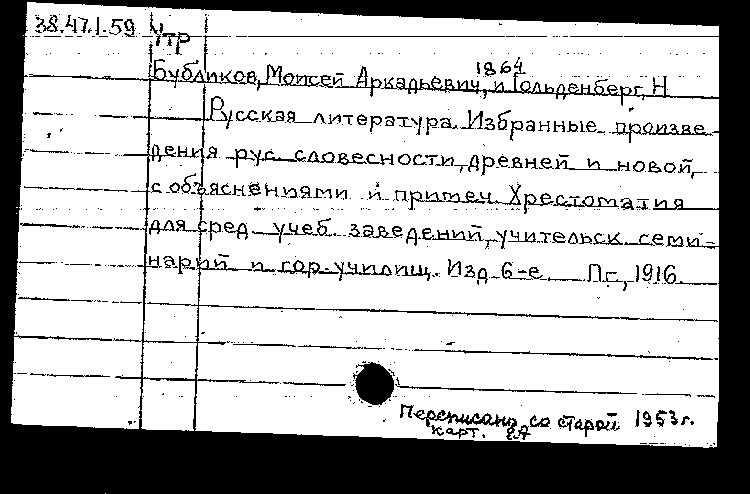 38.47.1.59 Утр
1864
Бубликов, Моисей Аркадьевич, и Гольденберг, Н
Русская литература. Избранные произве-
дения рус. словесности, древней и новой,
с объяснениями и примеч. Хрестоматия
для сред. учеб. заведений, учительск. семи-
нарий и гор. училищ. Изд. 6-е. Пг., 1916.
Переписано со старой 1953 г.
карт.